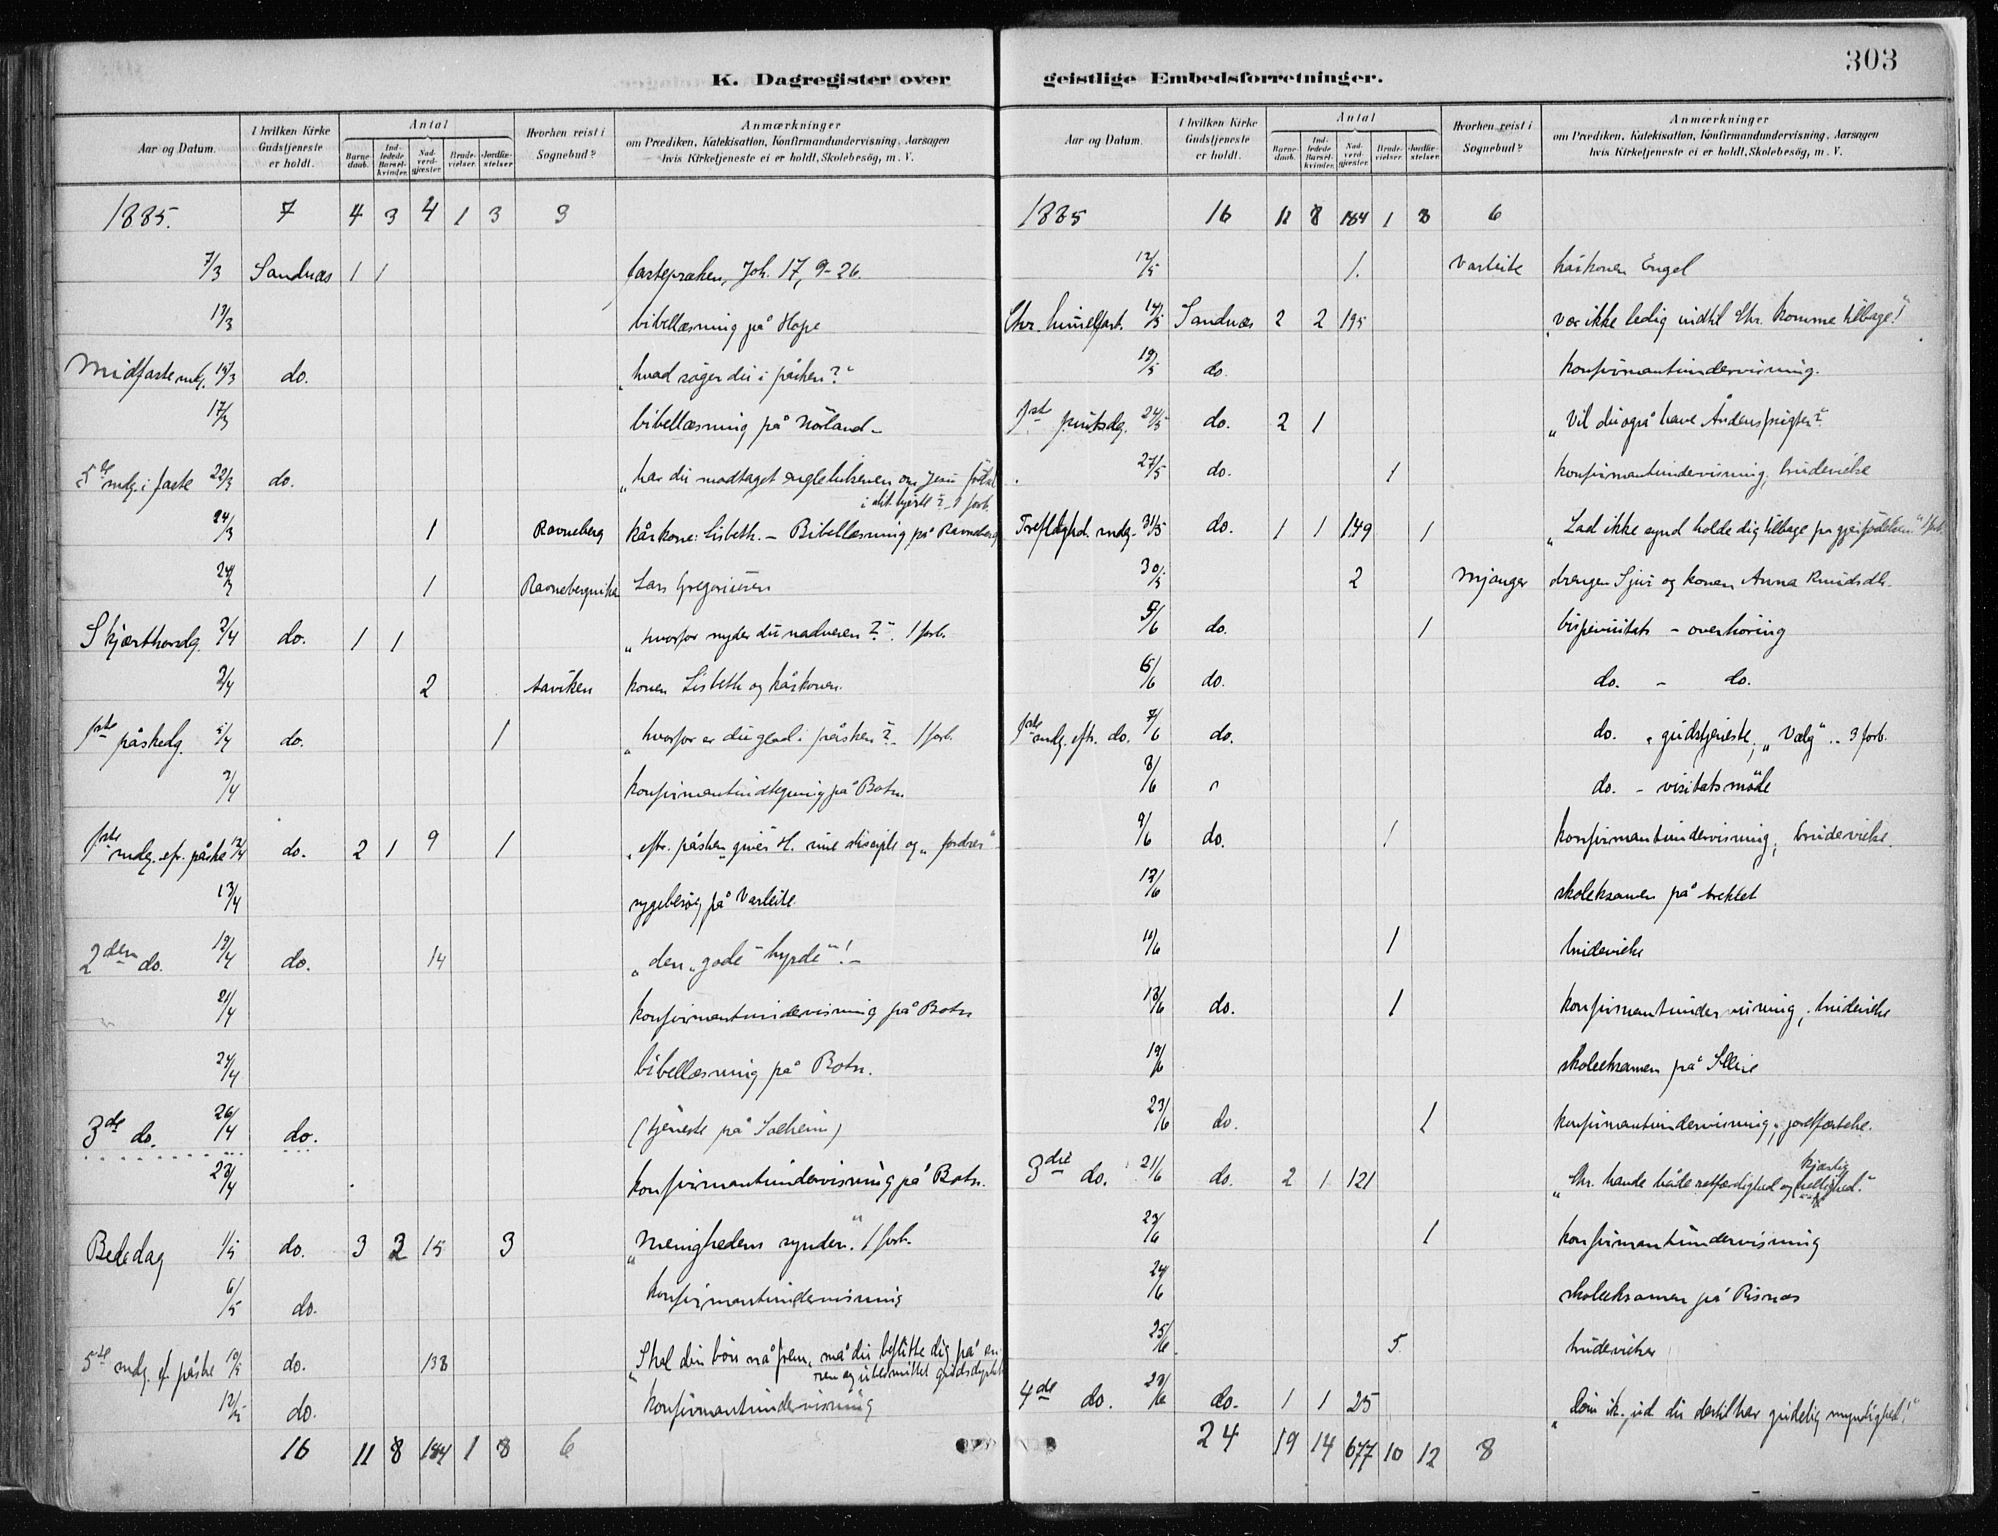 303
K. Dagregister over
Aar og Datum.
I hvilken Kirke Gudstjeneste er holdt.
Antal
Barne-daab.
Ind-ledede Barsel-kvinder.
Nad-verd-gjæster.
Brude-vielser.
Jordfæ-stelser.
Hvorhen reist i Sognebud?
Anmærkninger
om Prædiken, Katekisation, Konfirmandundervisning, Aarsagen
hvis Kirketjeneste ei er holdt, Skolebesög, m. V.
1885. 7 4 3 4 1 3 3
7/3 Sandnæs 1 1 fastepræken, Joh. 17, 9-26.
13/3 bibellæsning på Hope
Midfaste sndg. 15/3 do. „hvad söger du i påsken?"
17/3 bibellæsning på Nörland -
5te sndg. i faste 22/3 do. „har du modtaget englehilsenen om Jesu
i dit hjerte"? - 1 forb.
24/3 1 Ravneberg kårkone: Lisbeth. - Bibellæsning på Ravneberg
24/3 1 Lars Gregoriusen
Skjærthorsdg. 2/4 do. 1 1 „hvorfor nyder du nadveren?". 1 forb.
2/4 2 Aaviken konen Lisbeth og kårkonen.
1ste påskedg. 5/4 do. 1 „hvorfor er du glad i påsken?". 1 forb.
7/4 konfirmantindtegning på Botn.
1ste sndg. ef. påske 12/4 do. 2 1 9 1 „eftr. påsken „giver H. sine disciple og „fordrer"
13/4 sygebesög på Varleite
2den do. 19/4 do. 14 „den „gode" hyrde"! -
21/4 konfirmantundervisning på Botn
24/4 bibellæsning på Botn.
3de do. 26/4 do. (tjeneste på Solheim)
28/4 konfirmantundervisning på Botn.
Bededag 1/5 do. 3 2 15 3 „Menighedens synder". 1 forb.
6/5 do. konfirmantundervisning
5te sndg. ef. påske 10/5 do. 138 „Skal din bön nå frem, må du beflitte dig på en
ren og ubesmittet gudsdyrkelse
12/5 do. konfirmantundervisning
16 11 8 184 1 8 6
geistlige Embedsforretninger.
Aar og Datum.
I hvilken Kirke Gudstjeneste er holdt.
Antal
Barne-daab.
Ind-ledede Barsel-kvinder.
Nad-verd-gjæster.
Brude-vielser.
Jordfæ-stelser.
Hvorhen reist i Sognebud?
Anmærkninger
om Prædiken, Katekisation, Konfirmandundervisning, Aarsagen
hvis Kirketjeneste ei er holdt, Skolebesög, m. V.
1885 16 11 8 184 1 8 6
12/5 1. Varleite kårkonen Engel
Chr. himelfart. 14/5 Sandnæs 2 2 195 „Vær ikke ledig indtil Chr. komme tilbage!"
19/5 do. konfirmantundervisning.
1ste pintsdg. 24/5 do. 2 1 „Vil du også have Åndens frugter?"
27/5 do. 1 konfirmantundervisning, brudevielse
Trefoldghd. sndg. 31/5 do. 1 1 149 1 „Lad ikke synd holde dig tilbage fra gjenfødelsen" 1 forb.
30/5 2 Mjanger drengen Sjur og konen Anna Knudsdtr.
5/6 do. 1 bispevisitats - overhöring
6/6 do. do. - do.
1ste sndg. eftr. do. 7/6 do. do. „gudstjeneste, „Valg" .. 3 forb.
8/6 do. - visitatsmöde
9/6 do. 1 konfirmantundervisning, brudevielse.
12/6 skoleksamen på
1 brudevielse
13/6 do. 1 konfirmantundervisning, brudevielse
19/6 skoleeksamen på
23/6 do. 1 konfirmantundervisning, jordfæstelse.
3die do. 21/6 do. 2 1 121 „Chr. havde både retfærdighed og kjærlig
hellighed."
23/6 1 konfirmantundervisning
24/6 skoleeksamen på Risnæs
25/6 5 brudevielser
4de do. 28/6 do. 1 1 25 „Döm ik. ud du dertil har gudelig myndighed!"
24 19 14 677 10 12 8